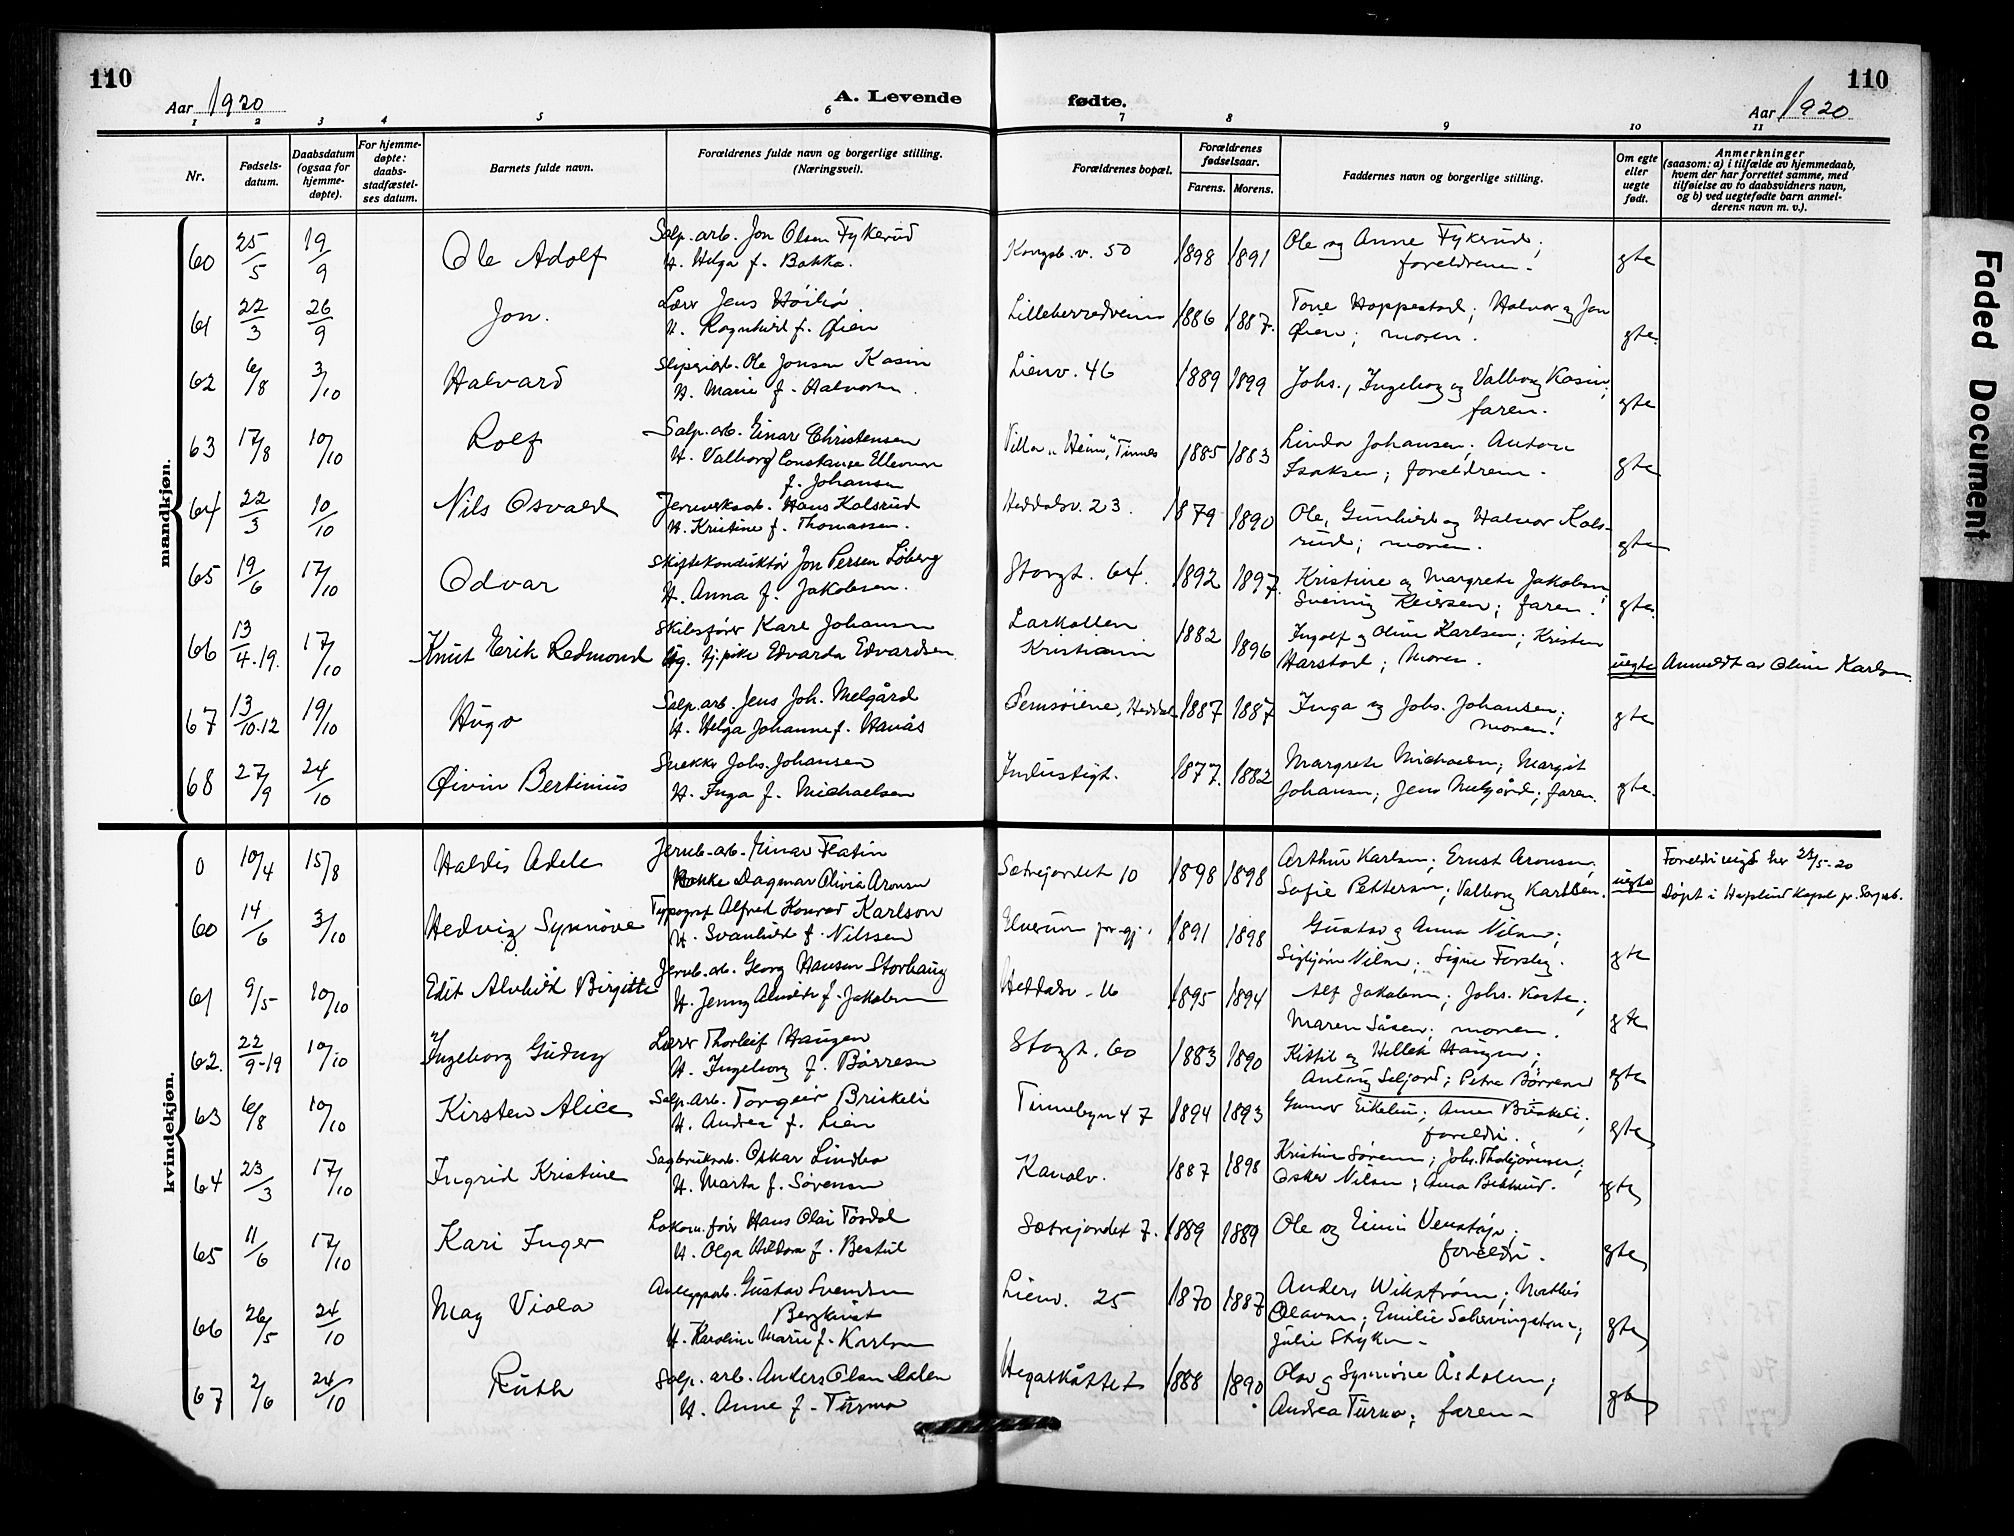 110
Aar 1920
A. Levende
fødte.
110
Aar 1920
1 2 3 4 5 6 7 8 9 10 11
Nr.
Fødsels-
datum.
Daabsdatum
(ogsaa for
hjemme-
døpte).
For hjemme-
døpte:
daabs-
stadfæstel-
ses datum.
Barnets fulde navn.
Forældrenes fulde navn og borgerlige stilling.
(Næringsvei).
Forældrenes bopæl.
Forældrenes
fødselsaar.
Farens. Morens.
Faddernes navn og borgerlige stilling.
Om egte
eller
uegte
født.
Anmerkninger
(saasom: a) i tilfælde av hjemmedaab,
hvem der har forrettet samme, med
tilføielse av to daabsvidners navn,
og b) ved uegtefødte barn anmel-
derens navn m. v.).
mandkjøn.
60 25/5 19/9 Ole Adolf Salp. arb. Jon Olsen Fykerud
H. Helga f. Bakka. Kongsb. v. 50 1898 1891 Ole og Anne Fykerud;
foreldrene. gte
61 22/3 26/9 Jon. Lærer Jens Høibø
H. Ragnhild f. Øien Lilleherredveien 1886 1887. Tone Hoppestad; Halvor og Jon
Øien; moren. gte.
62 6/8 3/10 Halvard Sliperiarb. Ole Jonsen Kasin
H. Marie f. Halvorsen. Lienv. 46 1889 1899 Johs., Ingeborg og Valborg Kasin;
faren. gte
63 17/8 10/10 Rolf Salp. arb. Einar Christensen
H. Valborg Constanse
f. Johansen Villa "Heim", Tinnes 1885 1883 Linda Johansen; Anton
Isaksen; foreldrene. gte
64 22/3 10/10 Nils Osvald Jernverksarb. Hans Kolsrud
H. Kristine f. Thomassen. Heddalsv. 23. 1879 1890 Ole, Gunhild og Halvor Kols-
rud; moren. gte
65 19/6 17/10 Odvar Skiftekonduktør Jon Persen Løberg
H. Anna f. Jakobsen. Storgt. 64. 1892 1897. Kristine og Margrete Jakobsen;
Sveinung Reiersen; faren. gte.
66 13/4.19. 17/10 Knut Erik Redmond Skibsfører Karl Johansen
Ug. tj.pike Edvarda Edvardsen Larkollen
Kristiania 1882 1896 Ingolf og Oline Karlsen; Kristen
Harstad; Moren. uegte Anmeldt av Oline Karlsen.
67 13/10.12 19/10 Hugo Salp. arb. Jens Joh. Melgård
H. Helga Johanne f. Hanås Heddal 1887 1887 Inga og Johs. Johansen;
moren. gte
68 27/9 24/10 Øivin Bertinius Snekker Johs. Johansen
H. Inga f. Michaelsen Industrigt. 1877. 1882 Margrete Michaelsen; Margit
Johansen; Jens Melgård; faren. gte.
kvindekjøn.
0 10/4 15/8 Haldis Adele Jernb. arb. Einar Flatin
Dagmar Olivia Aronsen Sætrejordet 10 1898 1898 Arthur Karlsen; Ernst Aronsen;
Sofie Pettersen; Valborg Karlsen. uegte 23/5-20
Døpt i Hafslund Kapel pr. Sarpsb.
60 14/6 3/10 Hedvig Synnøve Typograf Alfred Konrad Karlson
H. Svanhild f. Nilssen Elverum pr. gj. 1891 1898 Gustav og Anna Nilsen;
Sigbjørn Nilsen; Signe Forsberg. gte
61 9/5 10/10 Edit Alvhild Birgitte Jernb. arb. Georg Hansen Storhaug
H. Jenny f. Jakobsen Heddalsv. 16 1895 1894 Alf Jakobsen; Johs. Kaste;
Maren Såsen; moren. gte
62. 22/9-19 10/10 Ingeborg Gudny Lærer Thorleif Haugen
H. Ingeborg f. Børresen Storgt. 60 1883 1890 Kittil og Hellek Haugen;
Seljord; Petra Børresen gte
63 6/8 10/10 Kirsten Alice Salp. arb. Torgeir Briskeli
H. Andrea f. Lien Tinnebyen 47 1894 1893 Gunnar Eikelien; Anne Briskeli;
foreldre. gte
64 23/3 17/10 Ingrid Kristine Sagbruksarb. Oskar Lindbo
H. Marta f. Sørensen Kanalv. 1887 1898 Kristine Sørensen; Johs. Thobjørnsen;
Oskar Nilsen; Anna gte
65 11/6 17/10 Kari Inger Lokom.fører Hans Olai Tordal
H. Olga Aldora f. Bestul Sætrejordet 7. 1889 1889 Ole og Venstøp;
foreldre. gte
66 26/5 24/10 May Viola Anleggsarb. Gustav Svendsen
Bergkvist
H. Karoline Marie f. Karlsen Lienv. 25 1870 1887 Anders Wikstrøm; Mathis
Olavsen; Emilie
Julie gte
67 2/6 24/10 Ruth Salp. arb. Anders Olsen Dalen
H. Anne f. Turmo 1888 1890 Olav og Synnøve Åsdalen;
Andrea Turmo; faren gte
Faded Document